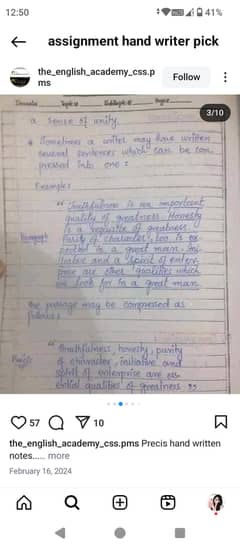 12:50
41%
assignment hand writer pick
the_english_academy_css.p
ms
Follow
3/10
a sense of unity.
* Sometimes a writer may have written
several sentences which can be com
pressed into one:
Example:
"Truthfulness is an important
quality of greatness. Honesty
is a requisite of greatness.
Purity of character, too is
in a great man.
and a spirit of enter
prise are other qualities which
we look for in a great man.
The passage may be compressed as
follows:
"Truthfulness, honesty, purity
of character, initiative and
spirit of enterprise are ess-
ential qualities of greatness "
57
10
the_english_academy_css.pms Precis hand written
notes..... more
February 16, 2024